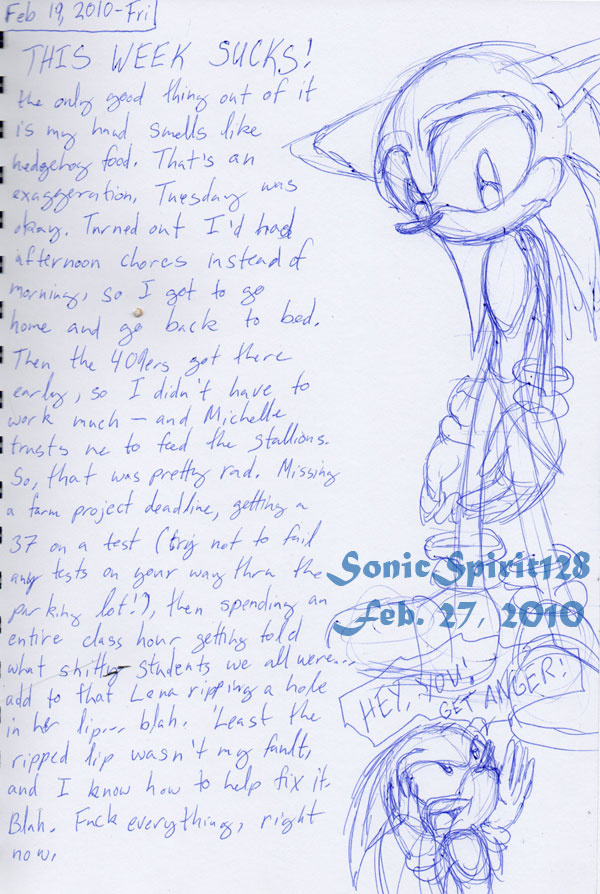 Feb 19, 2010-Fri
THIS WEEK SUCKS!
the only good thing out of it
is my hand smells like
hedgehog food. That's an
exaggeration, Tuesday was
okay. Turned out I'd had
afternoon chores instead of
morning, so I got to go
home and go back to bed.
Then the 409ers got there
early, so I didn't have to
work much — and Michelle
trusts me to feed the stallions.
So, that was pretty rad. Missing
a farm project deadline, getting a
37 on a test (try not to fail
any tests on your way thru the
parking lot!), then spending an
entire class hour getting told
what shitty students we all were...
add to that Lena ripping a hole
in her lip... blah. 'Least the
ripped lip wasn't my fault,
and I know how to help fix it.
Blah. Fuck everything, right
now.
SonicSpirit128
Feb. 27, 2010
HEY, YOU!
GET ANGER!